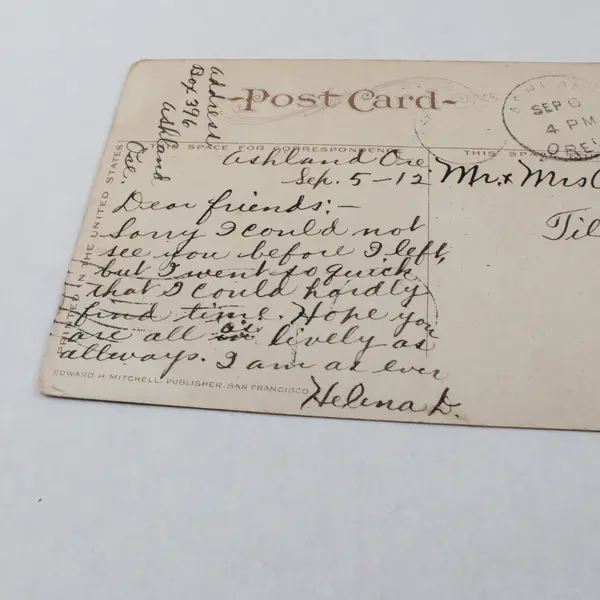 Address
Box 396
Ashland
Ore.
Post Card
THIS SPACE FOR CORRESPONDENCE
THIS SPA
PRINTED IN THE UNITED STATES
Ashland Ore
Sep. 5-12
Dear friends:-
Sorry I could not
see you before I left,
but I went so quick
that I could hardly
find time. Hope you
are all as lively as
allways. I am as ever
Helena D.
EDWARD H. MITCHELL, PUBLISHER, SAN FRANCISCO
ASHLAND
SEP 6
4 PM
ORE.
Mr. & Mrs
Til